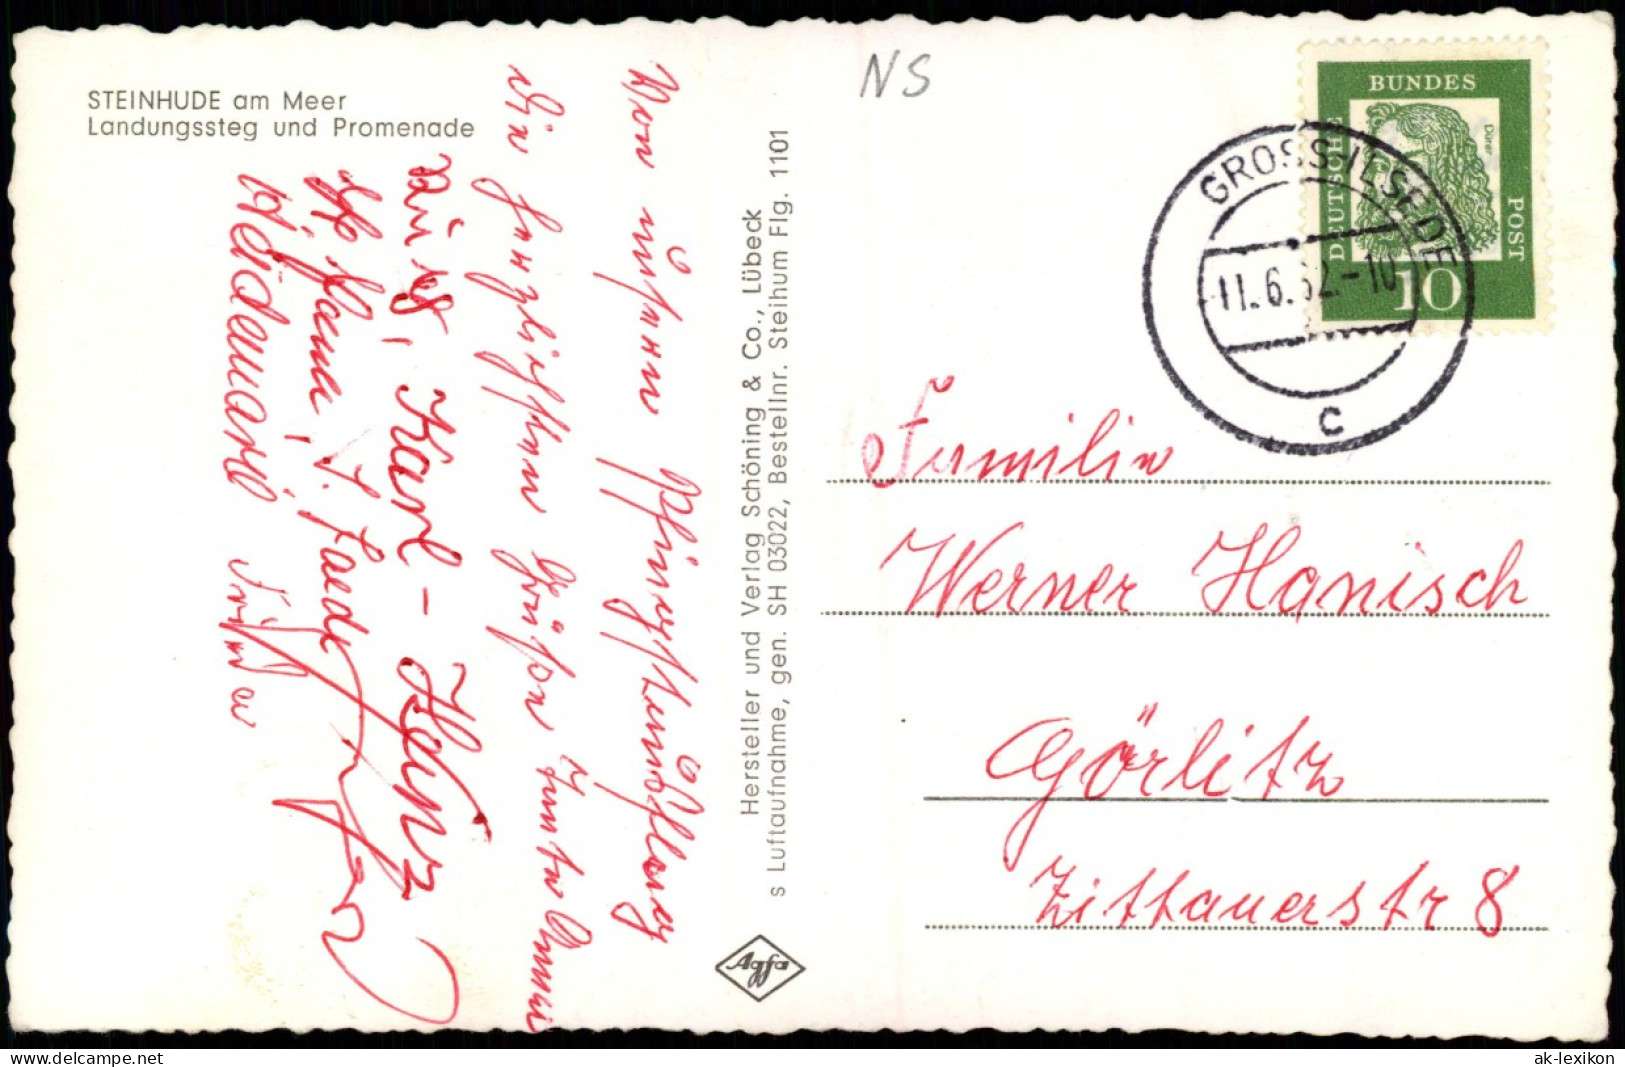 STEINHUDE am Meer
Landungssteg und Promenade
Von unserem Pfingstausflug
die herzlichsten Grüße sendet
Karl-Heinz
Hersteller und Verlag Schöning & Co., Lübeck
s Luftaufnahme, gen. SH 03022, Bestellnr. Steihum Flg. 1101
Agfa
NS
DEUTSCHE
BUNDES
POST
Dürer
10
GROSS-ILSEDE
11.6.62.-10
c
Familie
Werner Hanisch
Görlitz
Zittauerstr 8
ak-lexikon.de
www.delcampe.net